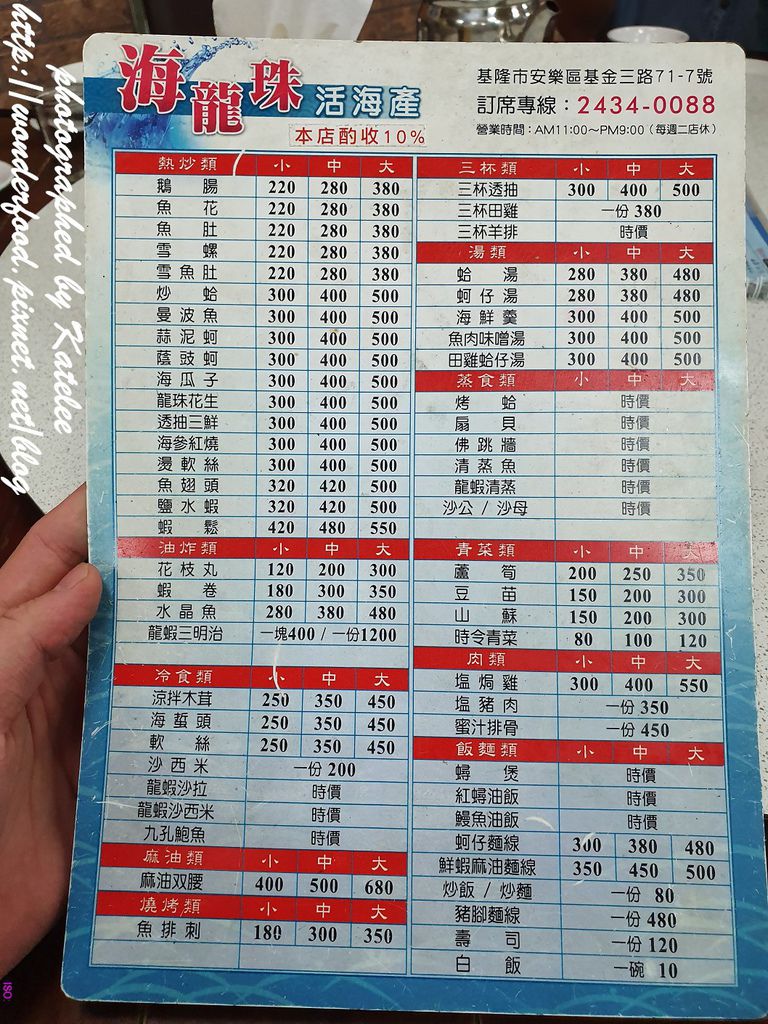 海龍珠 活海產
本店酌收10%
基隆市安樂區基金三路71-7號
訂席專線：2434-0088
營業時間：AM11:00～PM9:00（每週二店休）
熱炒類 小 中 大
鵝腸 220 280 380
魚花 220 280 380
魚肚 220 280 380
雪螺 220 280 380
雪魚肚 220 280 380
炒蛤 300 400 500
曼波魚 300 400 500
蒜泥蚵 300 400 500
蔭豉蚵 300 400 500
海瓜子 300 400 500
龍珠花生 300 400 500
透抽三鮮 300 400 500
海參紅燒 300 400 500
燙軟絲 300 400 500
魚翅頭 320 420 500
鹽水蝦 320 420 500
蝦鬆 420 480 550
油炸類 小 中 大
花枝丸 120 200 300
蝦卷 180 300 350
水晶魚 280 380 480
龍蝦三明治 一塊400 / 一份1200
冷食類 小 中 大
涼拌木茸 250 350 450
海蜇頭 250 350 450
軟絲 250 350 450
沙西米 一份 200
龍蝦沙拉 時價
龍蝦沙西米 時價
九孔鮑魚 時價
麻油類 小 中 大
麻油双腰 400 500 680
燒烤類 小 中 大
魚排刺 180 300 350
三杯類 小 中 大
三杯透抽 300 400 500
三杯田雞 一份 380
三杯羊排 時價
湯類 小 中 大
蛤湯 280 380 480
蚵仔湯 280 380 480
海鮮羹 300 400 500
魚肉味噌湯 300 400 500
田雞蛤仔湯 300 400 500
蒸食類 小 中 大
烤蛤 時價
扇貝 時價
佛跳牆 時價
清蒸魚 時價
龍蝦清蒸 時價
沙公 / 沙母 時價
青菜類 小 中 大
蘆筍 200 250 350
豆苗 150 200 300
山蘇 150 200 300
時令青菜 80 100 120
肉類 小 中 大
塩焗雞 300 400 550
塩豬肉 一份 350
蜜汁排骨 一份 450
飯麵類 小 中 大
蟳煲 時價
紅蟳油飯 時價
鰻魚油飯 時價
蚵仔麵線 300 380 480
鮮蝦麻油麵線 350 450 500
炒飯 / 炒麵 一份 80
豬腳麵線 一份 480
壽司 一份 120
白飯 一碗 10
photographed by Katelee
http://wonderfood.pixnet.net/blog
ISO: